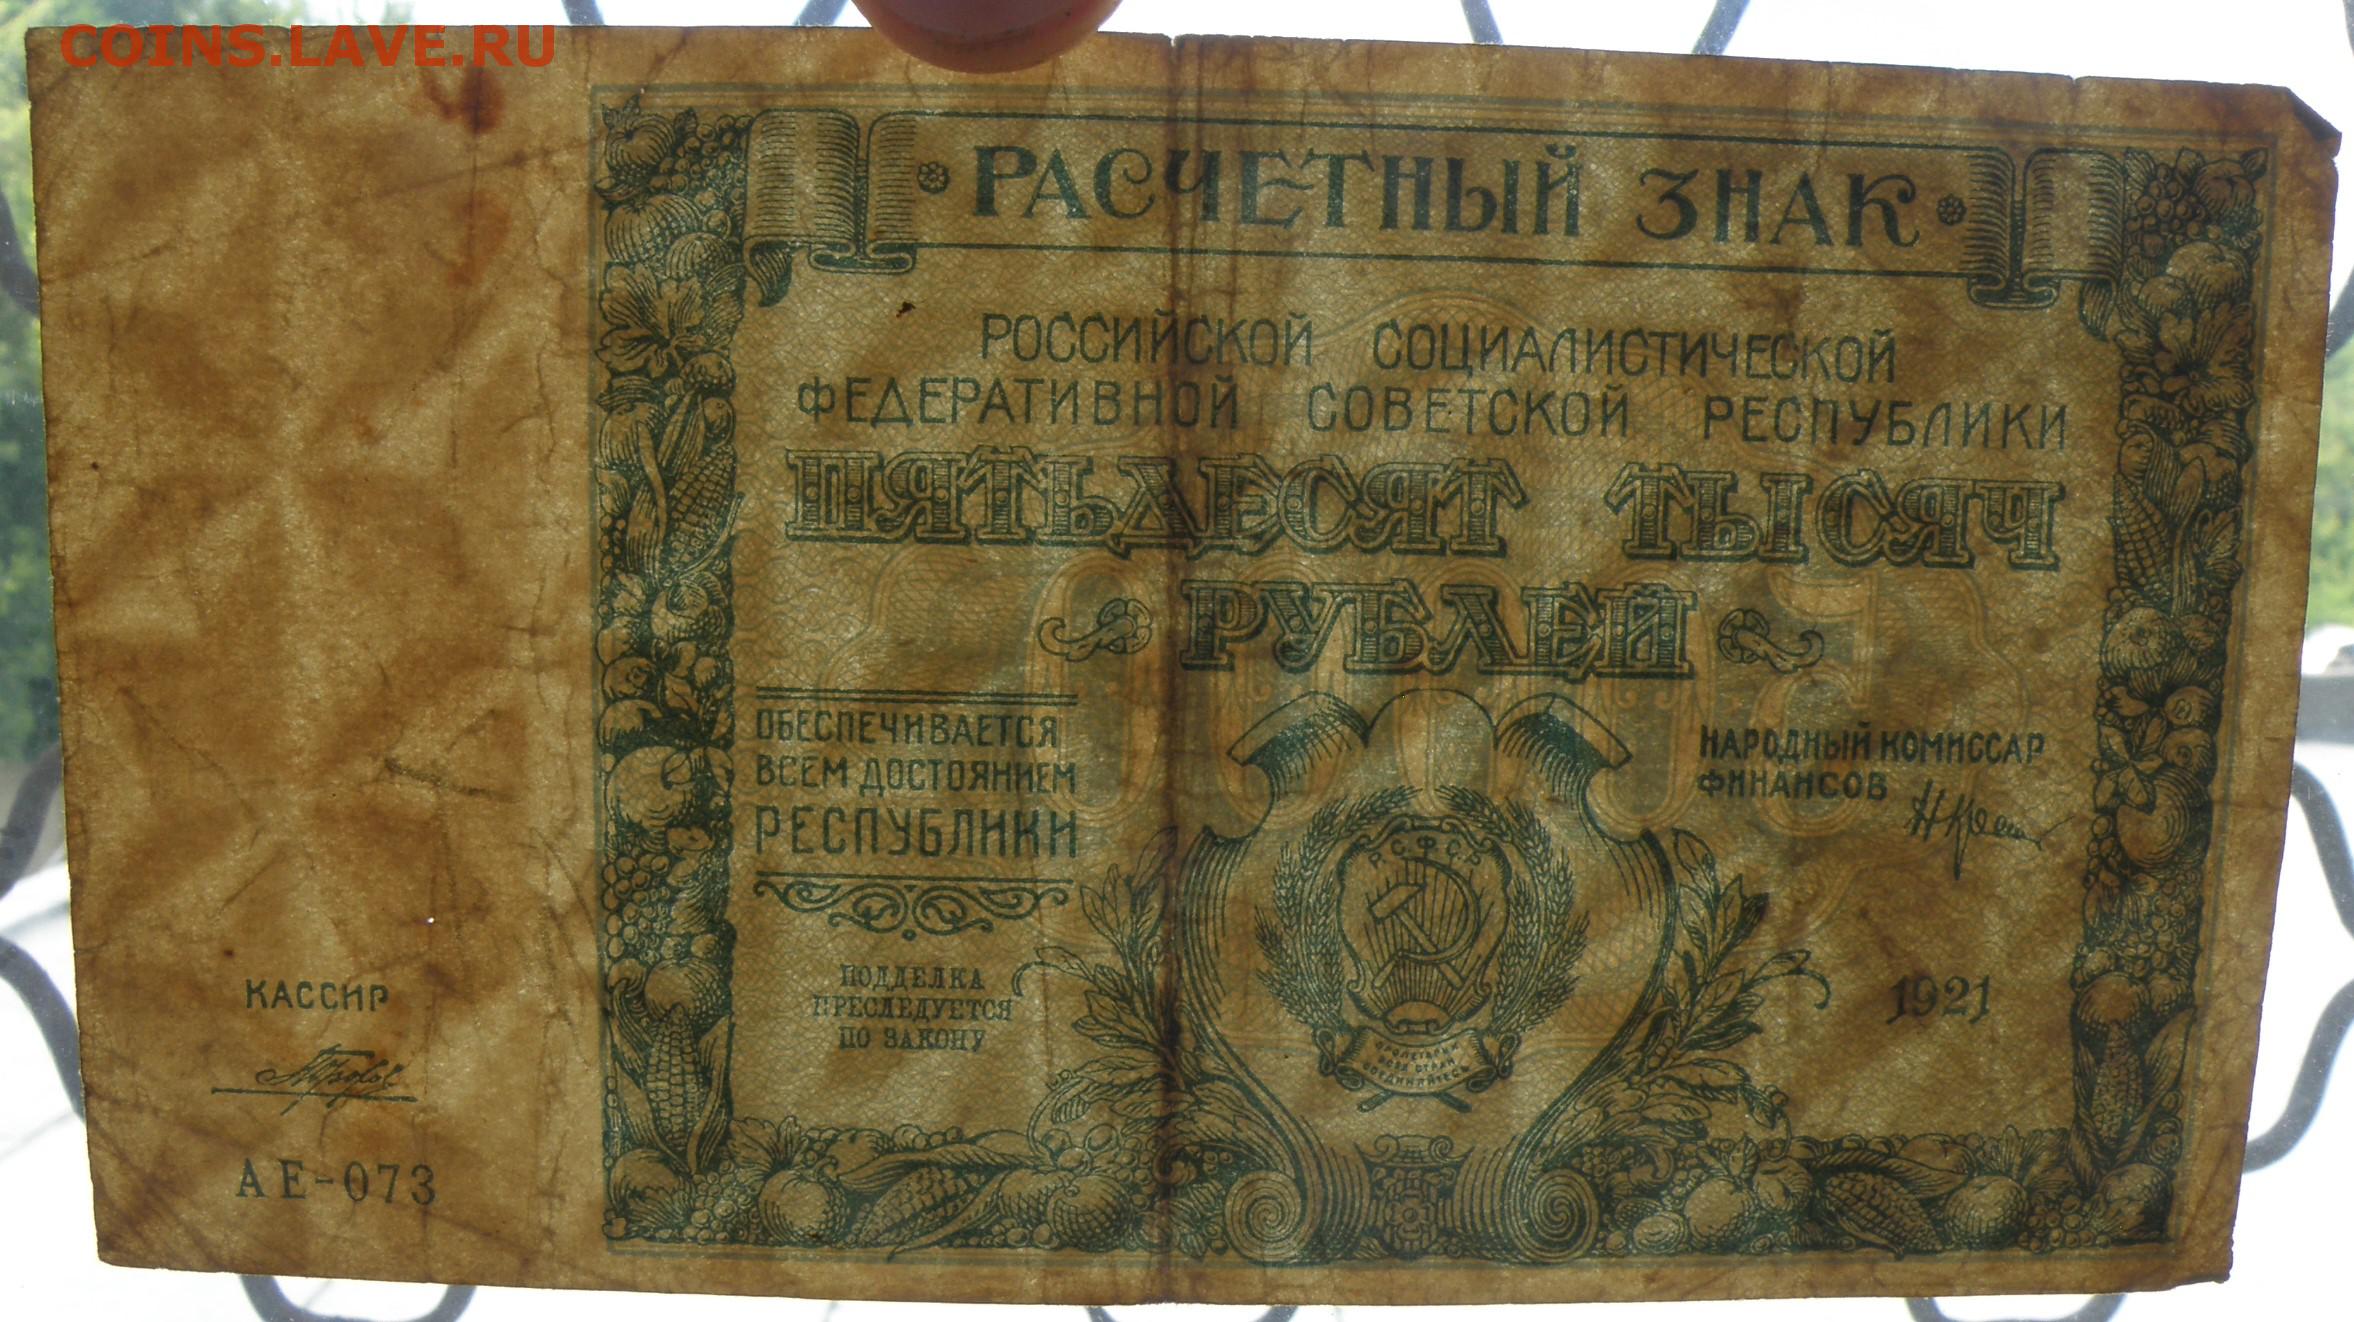 COINS.LAVE.RU
РАСЧЕТНЫЙ ЗНАК
РОССИЙСКОЙ СОЦИАЛИСТИЧЕСКОЙ
ФЕДЕРАТИВНОЙ СОВЕТСКОЙ РЕСПУБЛИКИ
ПЯТЬДЕСЯТ ТЫСЯЧ
РУБЛЕЙ
ОБЕСПЕЧИВАЕТСЯ
ВСЕМ ДОСТОЯНИЕМ
РЕСПУБЛИКИ
ПОДДЕЛКА
ПРЕСЛЕДУЕТСЯ
ПО ЗАКОНУ
Р.С.Ф.С.Р.
ПРОЛЕТАРИИ
ВСЕХ СТРАН
СОЕДИНЯЙТЕСЬ
НАРОДНЫЙ КОМИССАР
ФИНАНСОВ
1921
КАССИР
АЕ-073